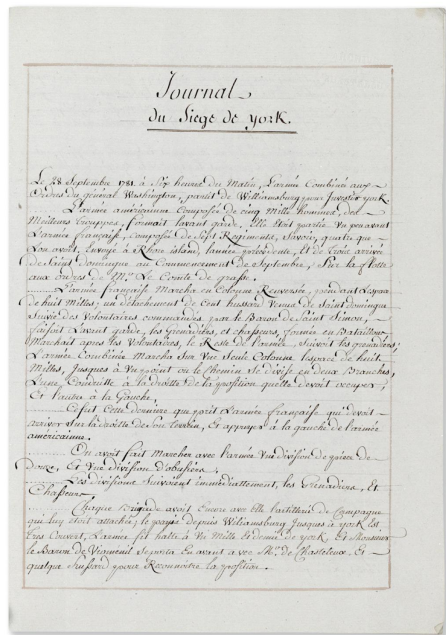 Journal
du Siege de york.
Le 28 Septembre 1781. à Six heures du Matin, L'armée Combinée aux
Ordres du général Washington, partit de Williamsburg pour Investir york.
L'armée américaine Composée de cinq Mille hommes, des
Meilleurs trouppes, formait l'avant garde, Elle étoit partie un peu avant
L'armée française, Composée de Sept Régiments, Savoir, quatre que
L'on avoit Envoyé à Rhode island, l'année précédente, Et de trois arrivés
de Saint domingue au Commencement de Septembre, Sur la flotte
aux Ordres de Mr. Le Comte de grasse;
L'armée française Marcha en Colonne Renversée, pendant L'espace
de huit Milles; un détachement de Cent hussard Venus de Saint domingue
Suivie des Volontaires commandés par le Baron de Saint Simon,
faisoit L'avant garde, les grenadiers, et chasseurs, formés en Bataillons
Marchait après les Volontaires, le Reste de l'armée Suivoit les grenadiers;
L'armée Combinée Marcha Sur Une Seule Colonne l'espace de huit
Milles, Jusques à Un point ou le Chemin Se divise en deux Branches,
L'une Conduite à la droitte de la position qu'elle devoit occuper,
Et l'autre à la Gauche.
Ce fut Cette derniere que prit L'armée française qui devoit
arriver Sur la droitte de Son terrein, Et appuyer à la gauche de l'armée
américaine.
On avoit fait Marcher avec l'armée Une division de pièces de
Douze, Et Une division d'obusiers.
Les divisions Suivoient immédiatement, les Grenadiers, Et
Chasseurs.
Chaque Brigade avoit Encore avec Elle l'artillerie de Campagne
qui luy étoit attachée; le païs depuis Williamsburg Jusques à york Est
très Couvert, L'armée fit halte à Un Mille Et demie de york, Et Monsieur
le Baron de Viomenil Se porta En avant avec Mr. de Chasteleux, Et
quelque hussard pour Reconnoitre la position.